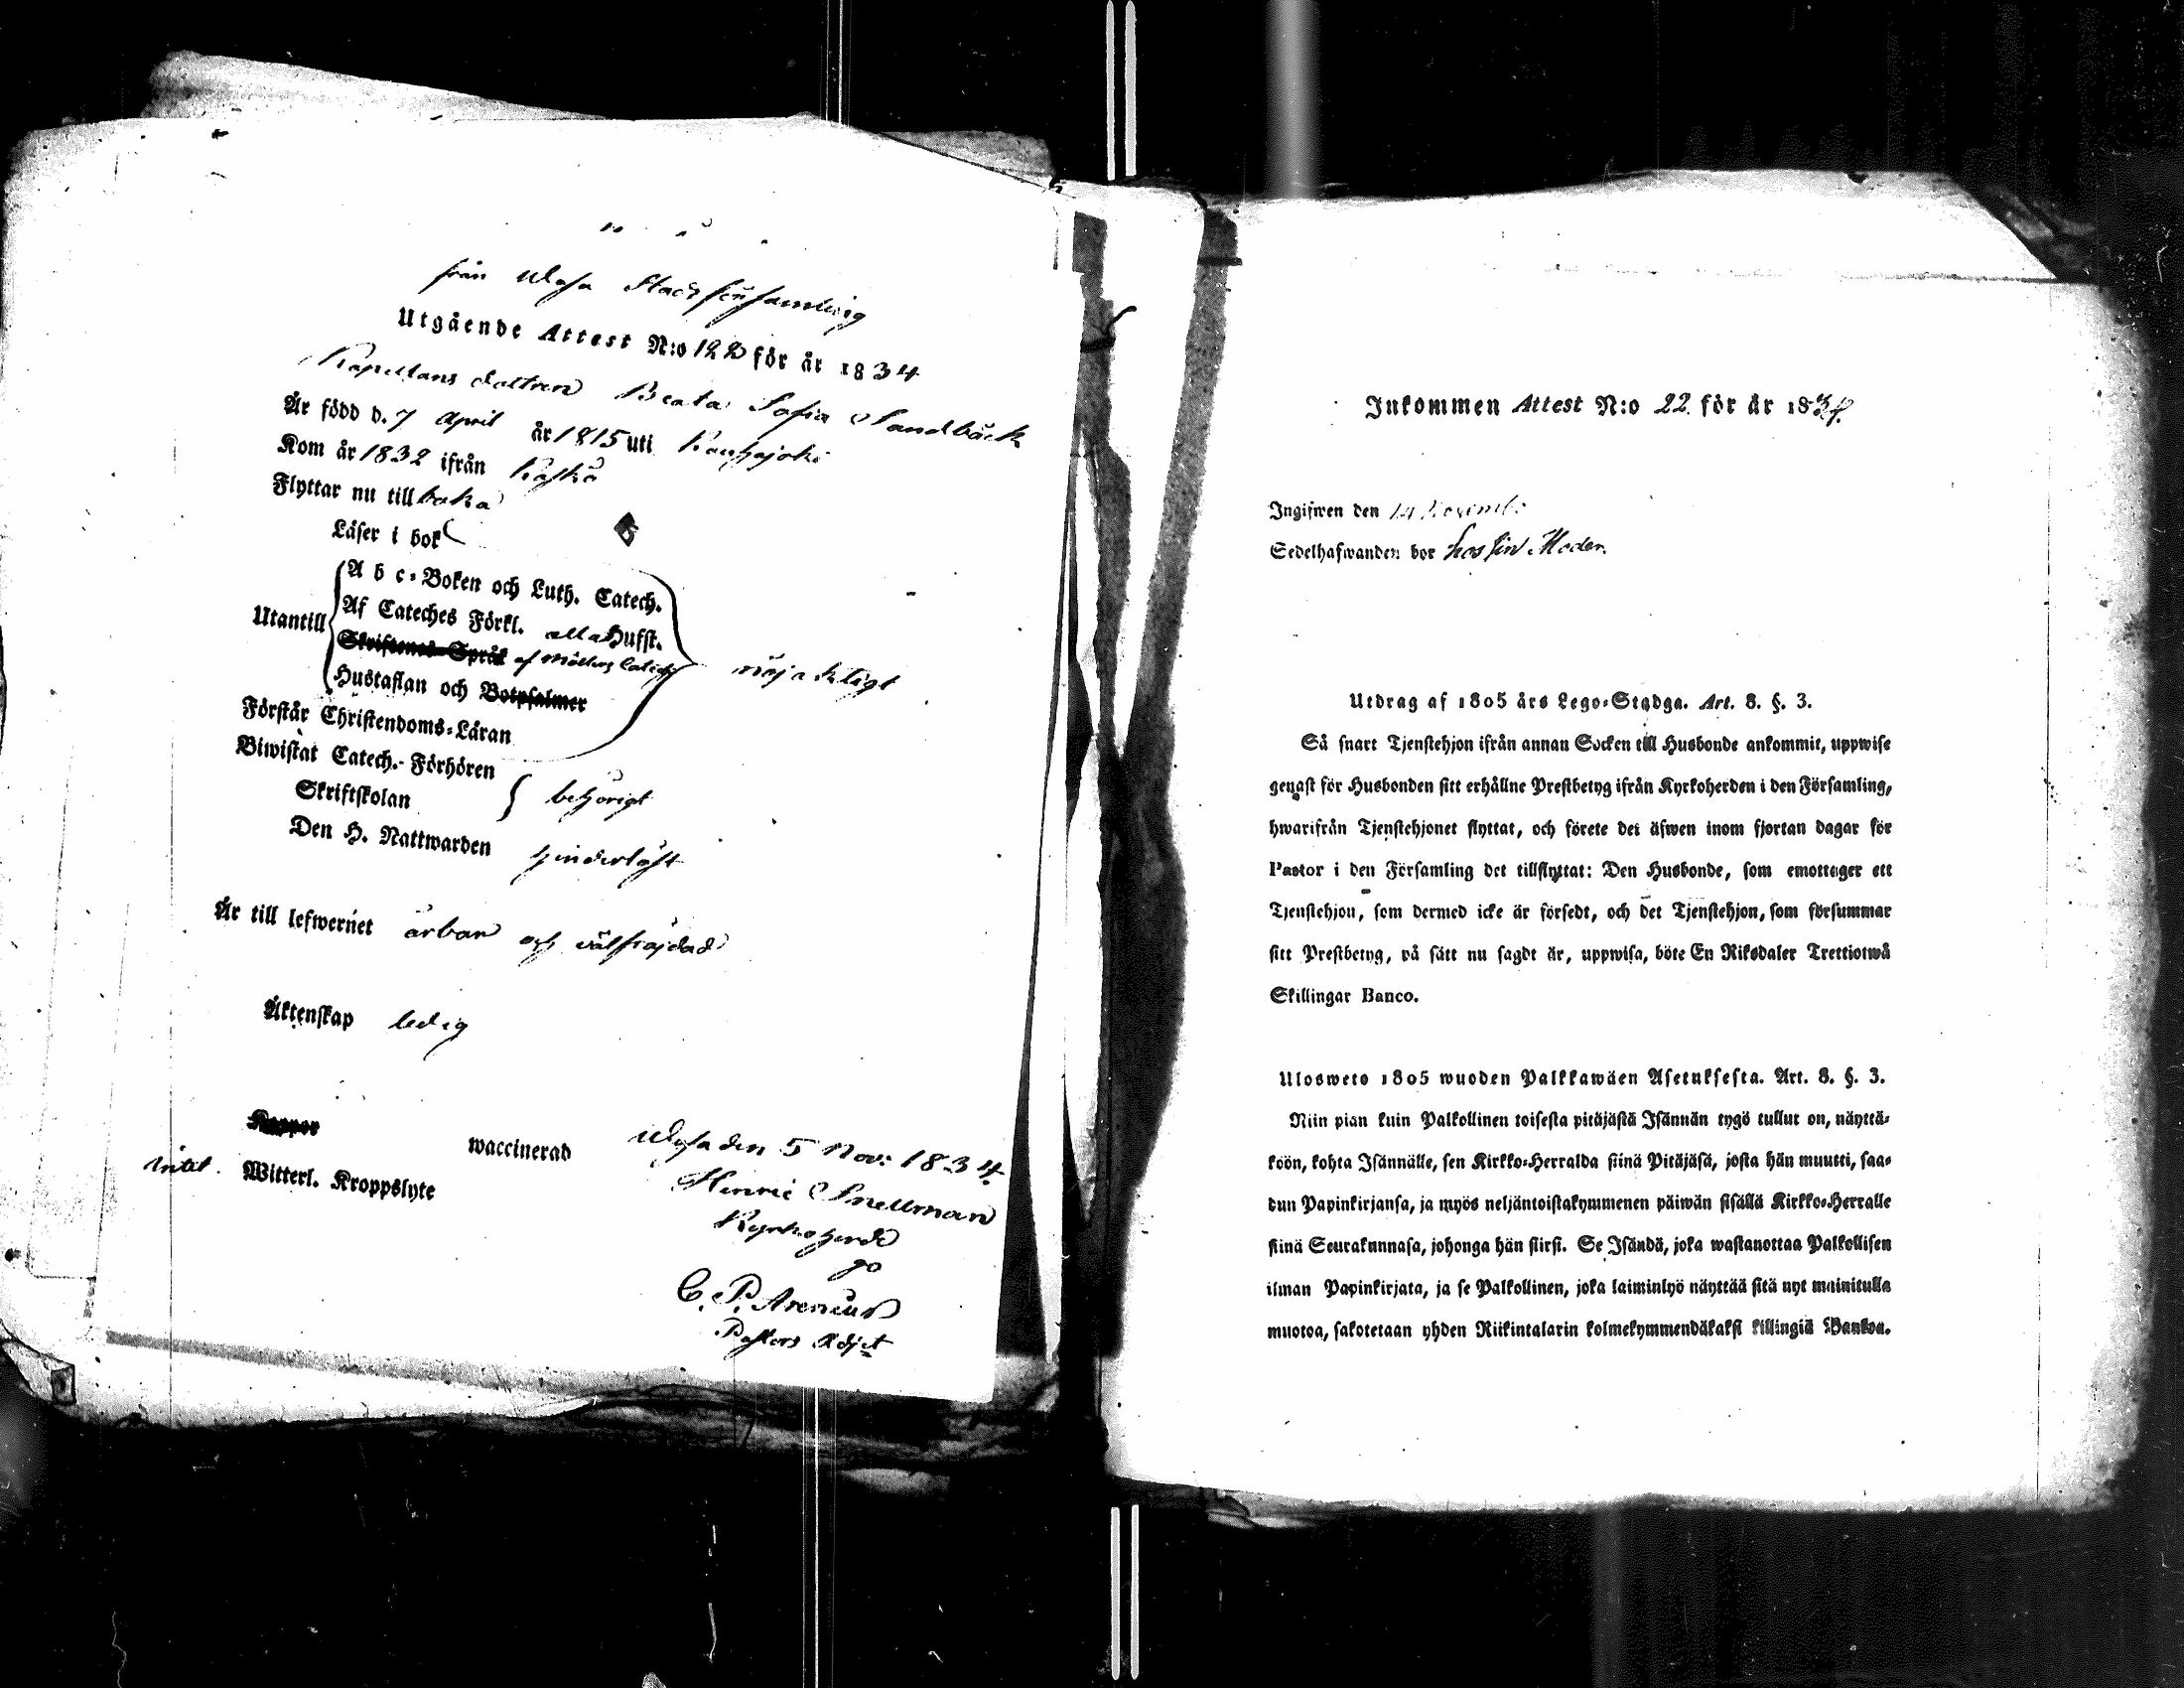 från Wasa Stads församling
Utgående Attest N:o 122 för år 1834
Kapellans dottren Beata Sofia Sandbäck
Är född d. 7 April år 1815 uti Kauhajoki
Kom år 1832 ifrån Kaskö
Flyttar nu till baka
Läser i bok
A b c-Boken och Luth. Catech.
Af Cateches Förkl. alla Hufst.
Utantill
Skriftenes Språk af Möllers Catech
nöjaktigt
Hustaflan och Botpsalmer
Förstår Christendoms-Läran
Biwistat Catech.-Förhören
Skriftskolan
behörigt
Den H. Nattwarden hinderlöst
Är till lefwernet ärbar och välfräjdad
Äktenskap ledig
Koppor
waccinerad
intet. Witterl. Kroppslyte
Wasa den 5 Nov: 1834.
Henric Snellman
Kyrkoherde
C. P. Arenius
Pastors Adjct
Inkommen Attest N:o 22 för år 1834.
Ingifwen den 14 Novemb:
Sedelhafwanden bor hos sin Moder.
Utdrag af 1805 års Lego-Stadga. Art. 8. §. 3.
Så snart Tjenstehjon ifrån annan Socken till Husbonde ankommit, uppwise
genast för Husbonden sitt erhållne Prestbetyg ifrån Kyrkoherden i den Församling,
hwarifrån Tjenstehjonet flyttat, och förete det äfwen inom fjortan dagar för
Pastor i den Församling det tillflyttat: Den Husbonde, som emottager ett
Tjenstehjon, som dermed icke är försedt, och det Tjenstehjon, som försummar
sitt Prestbetyg, på sätt nu sagdt är, uppwisa, böte En Riksdaler Trettiotwå
Skillingar Banco.
Ulosweto 1805 wuoden Palkkawäen Asetuksesta. Art. 8. §. 3.
Niin pian kuin Palkollinen toisesta pitäjästä Isännän tygö tullut on, näyttä-
köön, kohta Isännälle, sen Kirkko-Herralda siinä Pitäjäsä, josta hän muutti, saa-
dun Papinkirjansa, ja myös neljäntoistakymmenen päiwän sisällä Kirkko-Herralle
siinä Seurakunnasa, johonga hän siirsi. Se Isändä, joka wastanottaa Palkollisen
ilman Papinkirjata, ja se Palkollinen, joka laiminlyö näyttää sitä nyt mainitulla
muotoa, sakotetaan yhden Riikintalarin kolmekymmendäkaksi killingiä Bankoa.